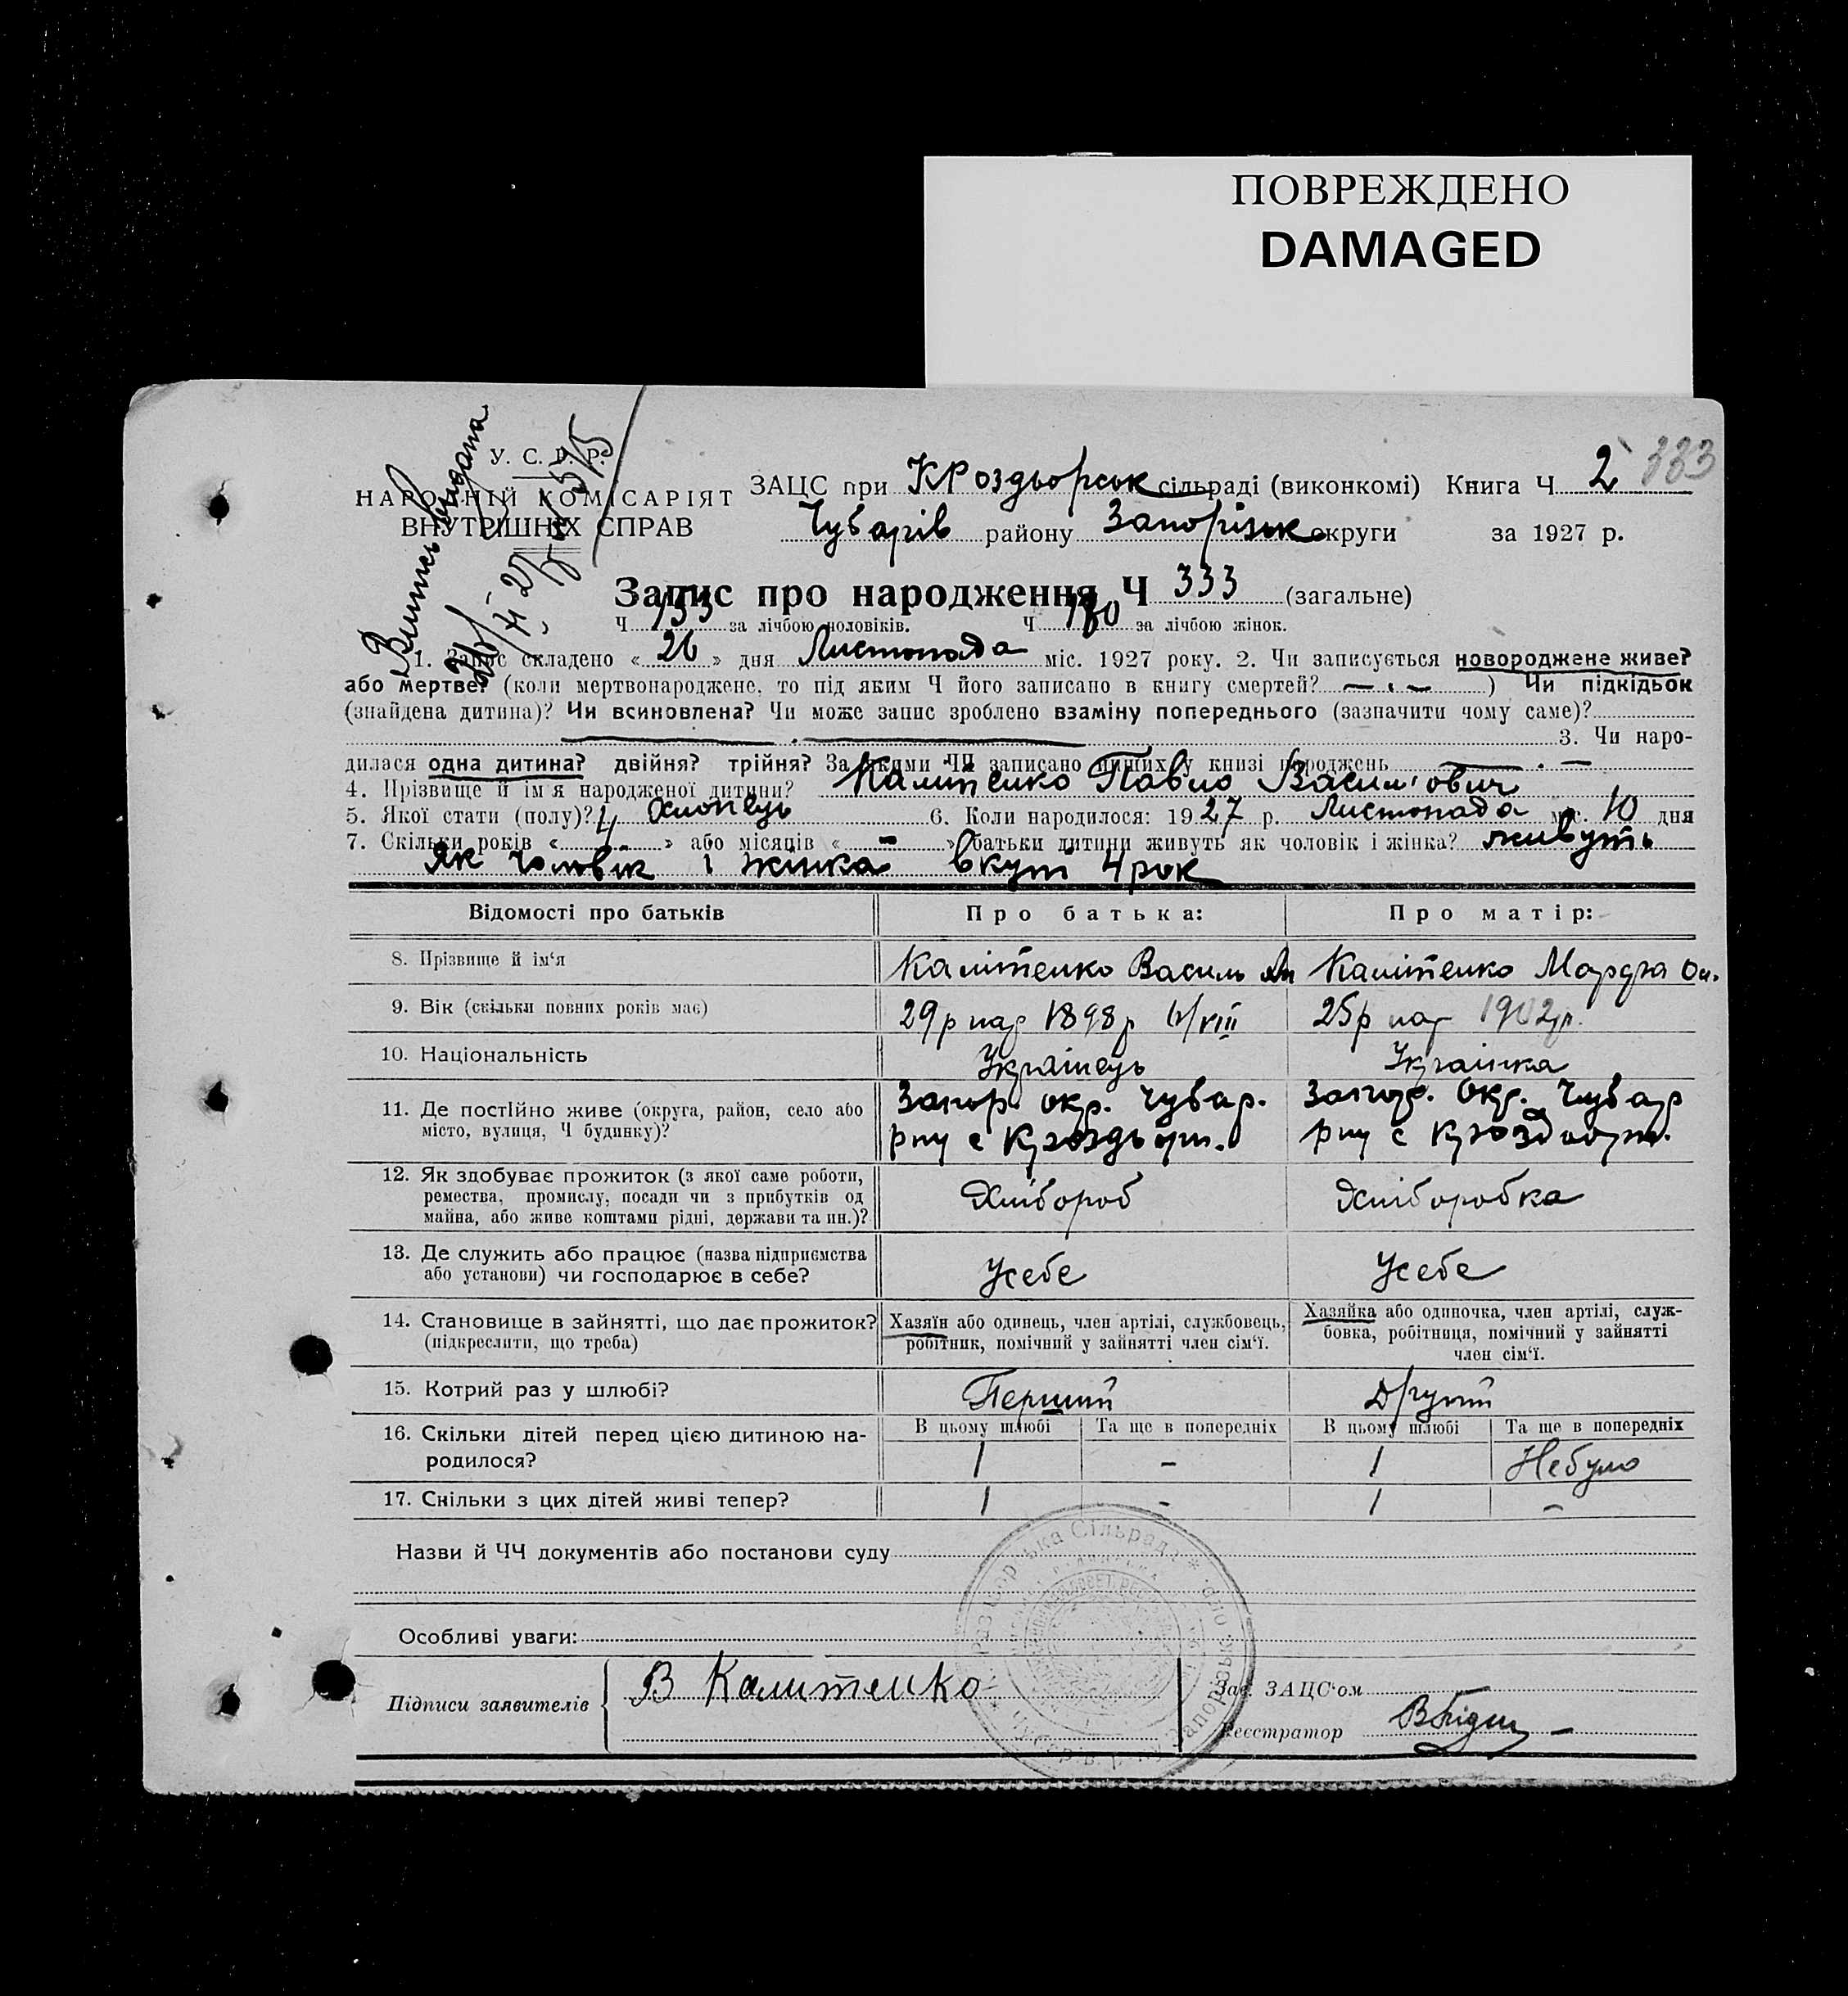 ПОВРЕЖДЕНО
DAMAGED
У. С. Р. Р.
НАРОДНІЙ КОМІСАРІЯТ
ВНУТРІШНІХ СПРАВ
Витяг видана
ЗАЦС при КРоздьорськ сільраді (виконкомі) Книга Ч 2 333
Чубарів району Запорізьк округи за 1927 р.
Запис про народження Ч 333 (загальне)
Ч 153 за лічбою чоловіків. Ч 180 за лічбою жінок.
1. Запис складено « 26 » дня Листопада міс. 1927 року. 2. Чи записується новороджене живе?
або мертве? (коли мертвонароджене, то під яким Ч його записано в книгу смертей? — . — ) Чи підкідьок
(знайдена дитина)? Чи всиновлена? Чи може запис зроблено взаміну попереднього (зазначити чому саме)?
3. Чи наро-
дилася одна дитина? двійня? трійня? За якими ЧЧ записано инших у книзі народжень — . —
4. Прізвище й ім'я народженої дитини? Калітенко Павло Васильович
5. Якої стати (полу)? Хлопець 6. Коли народилося: 1927 р. Листопада міс. 10 дня
7. Скільки років « 4 » або місяців « – » батьки дитини живуть як чоловік і жінка? живуть
як чоловік і жінка вкупі 4 рок
Відомості про батьків Про батька: Про матір:
8. Прізвище й ім'я Калітенко Василь Калітенко Марфа Он.
9. Вік (скільки повних років має) 29р нар 1898р 6/VIII 25р нар 1902р.
10. Національність Українець Українка
11. Де постійно живе (округа, район, село або Запор. окр. Чубар. Запор. Окр. Чубар
місто, вулиця, Ч будинку)? рну с Кроздьори. рну с Кроздьори.
12. Як здобуває прожиток (з якої саме роботи,
ремества, промислу, посади чи з прибутків од Хлібороб Хліборобка
майна, або живе коштами рідні, держави та ин.)?
13. Де служить або працює (назва підприємства Усебе Усебе
або установи) чи господарює в себе?
14. Становище в зайнятті, що дає прожиток? Хазяїн або одинець, член артілі, службовець, Хазяйка або одиночка, член артілі, служ-
(підкреслити, що треба) робітник, помічний у зайнятті член сім'ї. бовка, робітниця, помічний у зайнятті
член сім'ї.
15. Котрий раз у шлюбі? Перший Другий
16. Скільки дітей перед цією дитиною на- В цьому шлюбі Та ще в попередніх В цьому шлюбі Та ще в попередніх
родилося? 1 – 1 Небуло
17. Скільки з цих дітей живі тепер? 1 – 1 –
Назви й ЧЧ документів або постанови суду
Особливі уваги:
Підписи заявителів В Калитенко
Зав. ЗАЦС'ом
Реєстратор